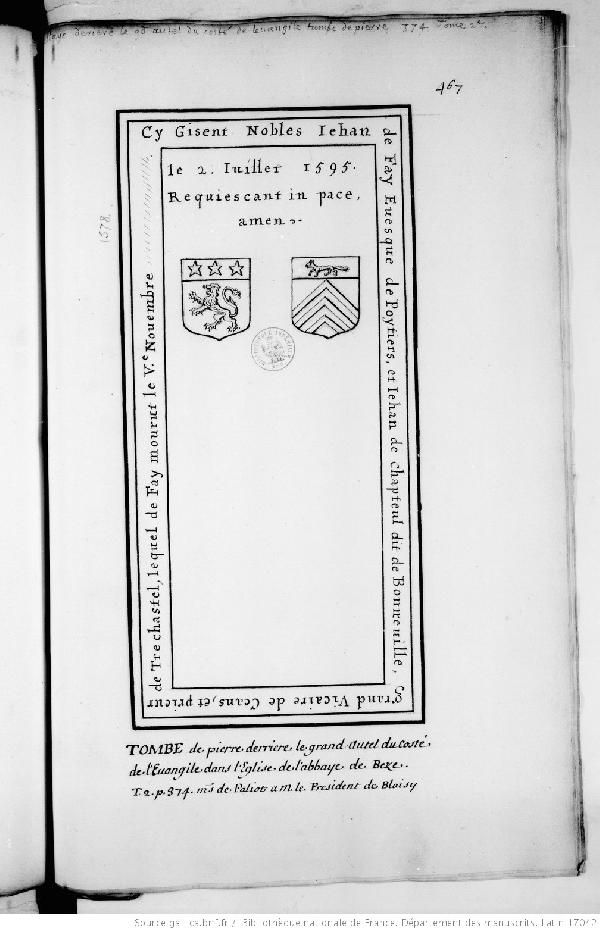 derriere le gd autel du costé de leuangile tumbe de pierre 374 Tome 2e.
467
Cy Gisent Nobles Iehan
de Fay Euesque de Poytiers, et Iehan de Chapteul dit de Bonneuille,
grand Vicaire de Ceans, et prieur
de Trechastel, lequel de Fay mourut le V.e Nouembre
1578
le 2. Iuillet 1595.
Requiescant in pace,
amen
TOMBE de pierre derriere le grand Autel du costé
de l'Euangile dans l'Eglise de l'abbaye de Beze.
T. 2. p. 374. ms de Paliot a M. le President de Blaisy
Source gallica.bnf.fr / Bibliothèque nationale de France. Département des manuscrits. Latin 17042